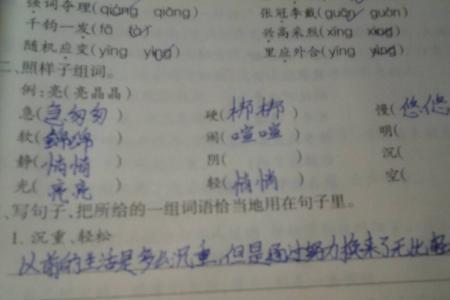 强词夺理(qiǎng qiāng) 张冠李戴(guān guàn)
千钧一发(fā fà) 兴高采烈(xīng xìng)
随机应变(yīng yìng) 里应外合(yīng yìng)
二、照样子组词。
例:亮(亮晶晶)
急(急匆匆) 硬(梆梆) 慢(悠悠
软(绵绵) 闹(喧喧) 明(
静(悄悄) 阴( ) 沉(
光(亮亮) 轻(悄悄) 空(
、写句子,把所给的一组词语恰当地用在句子里。
1. 沉重、轻松
以前的生活是多么沉重,但是通过努力换来了无比轻